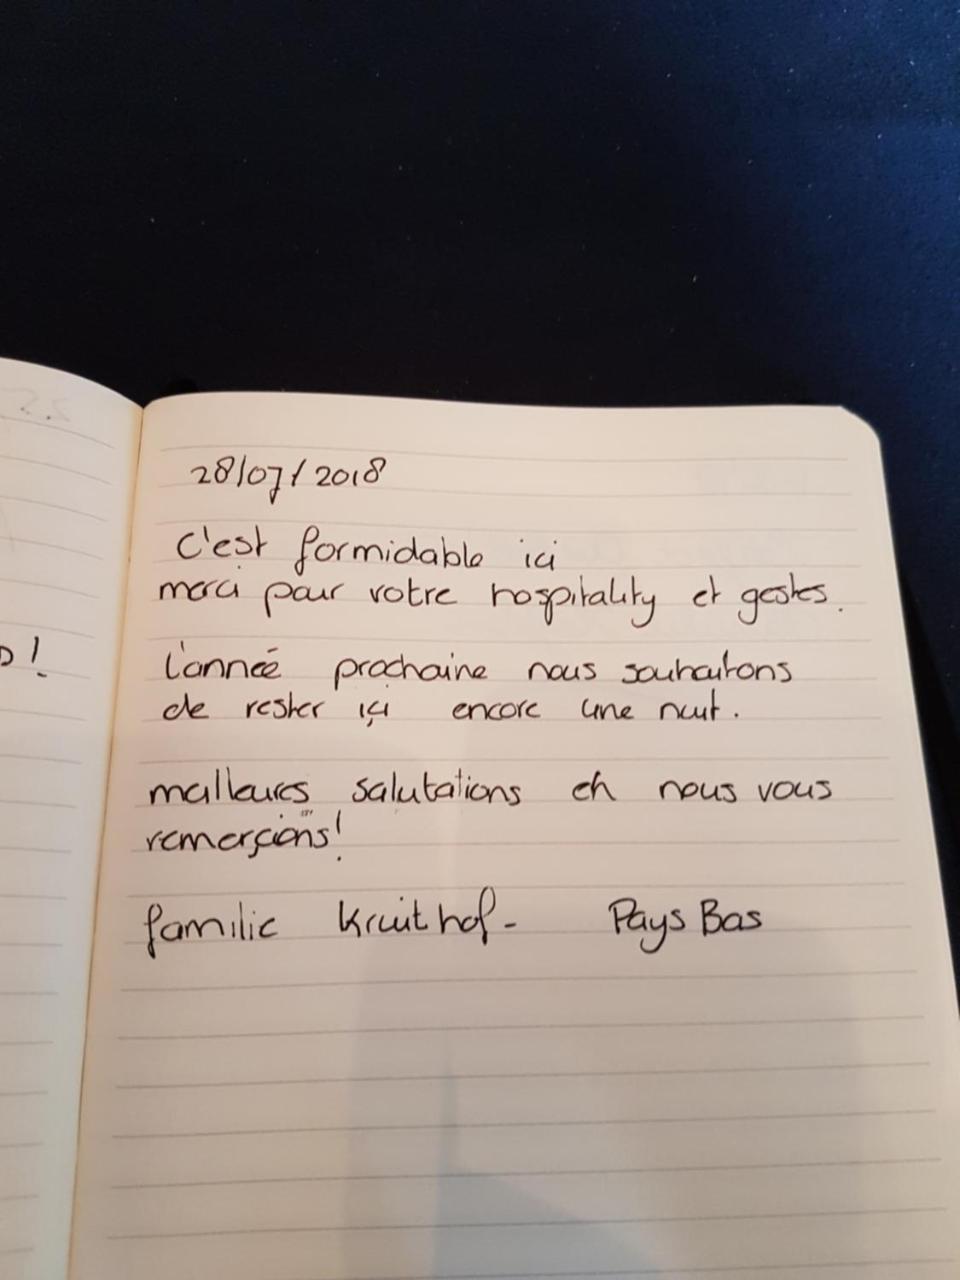 28/07/2018
C'est formidable ici
merci pour votre hospitality et gestes.
L'anneé prochaine nous souhaitons
de rester içi encore une nuit.
meilleures salutations eh nous vous
remerçions!
familie Kruithof - Pays Bas
!